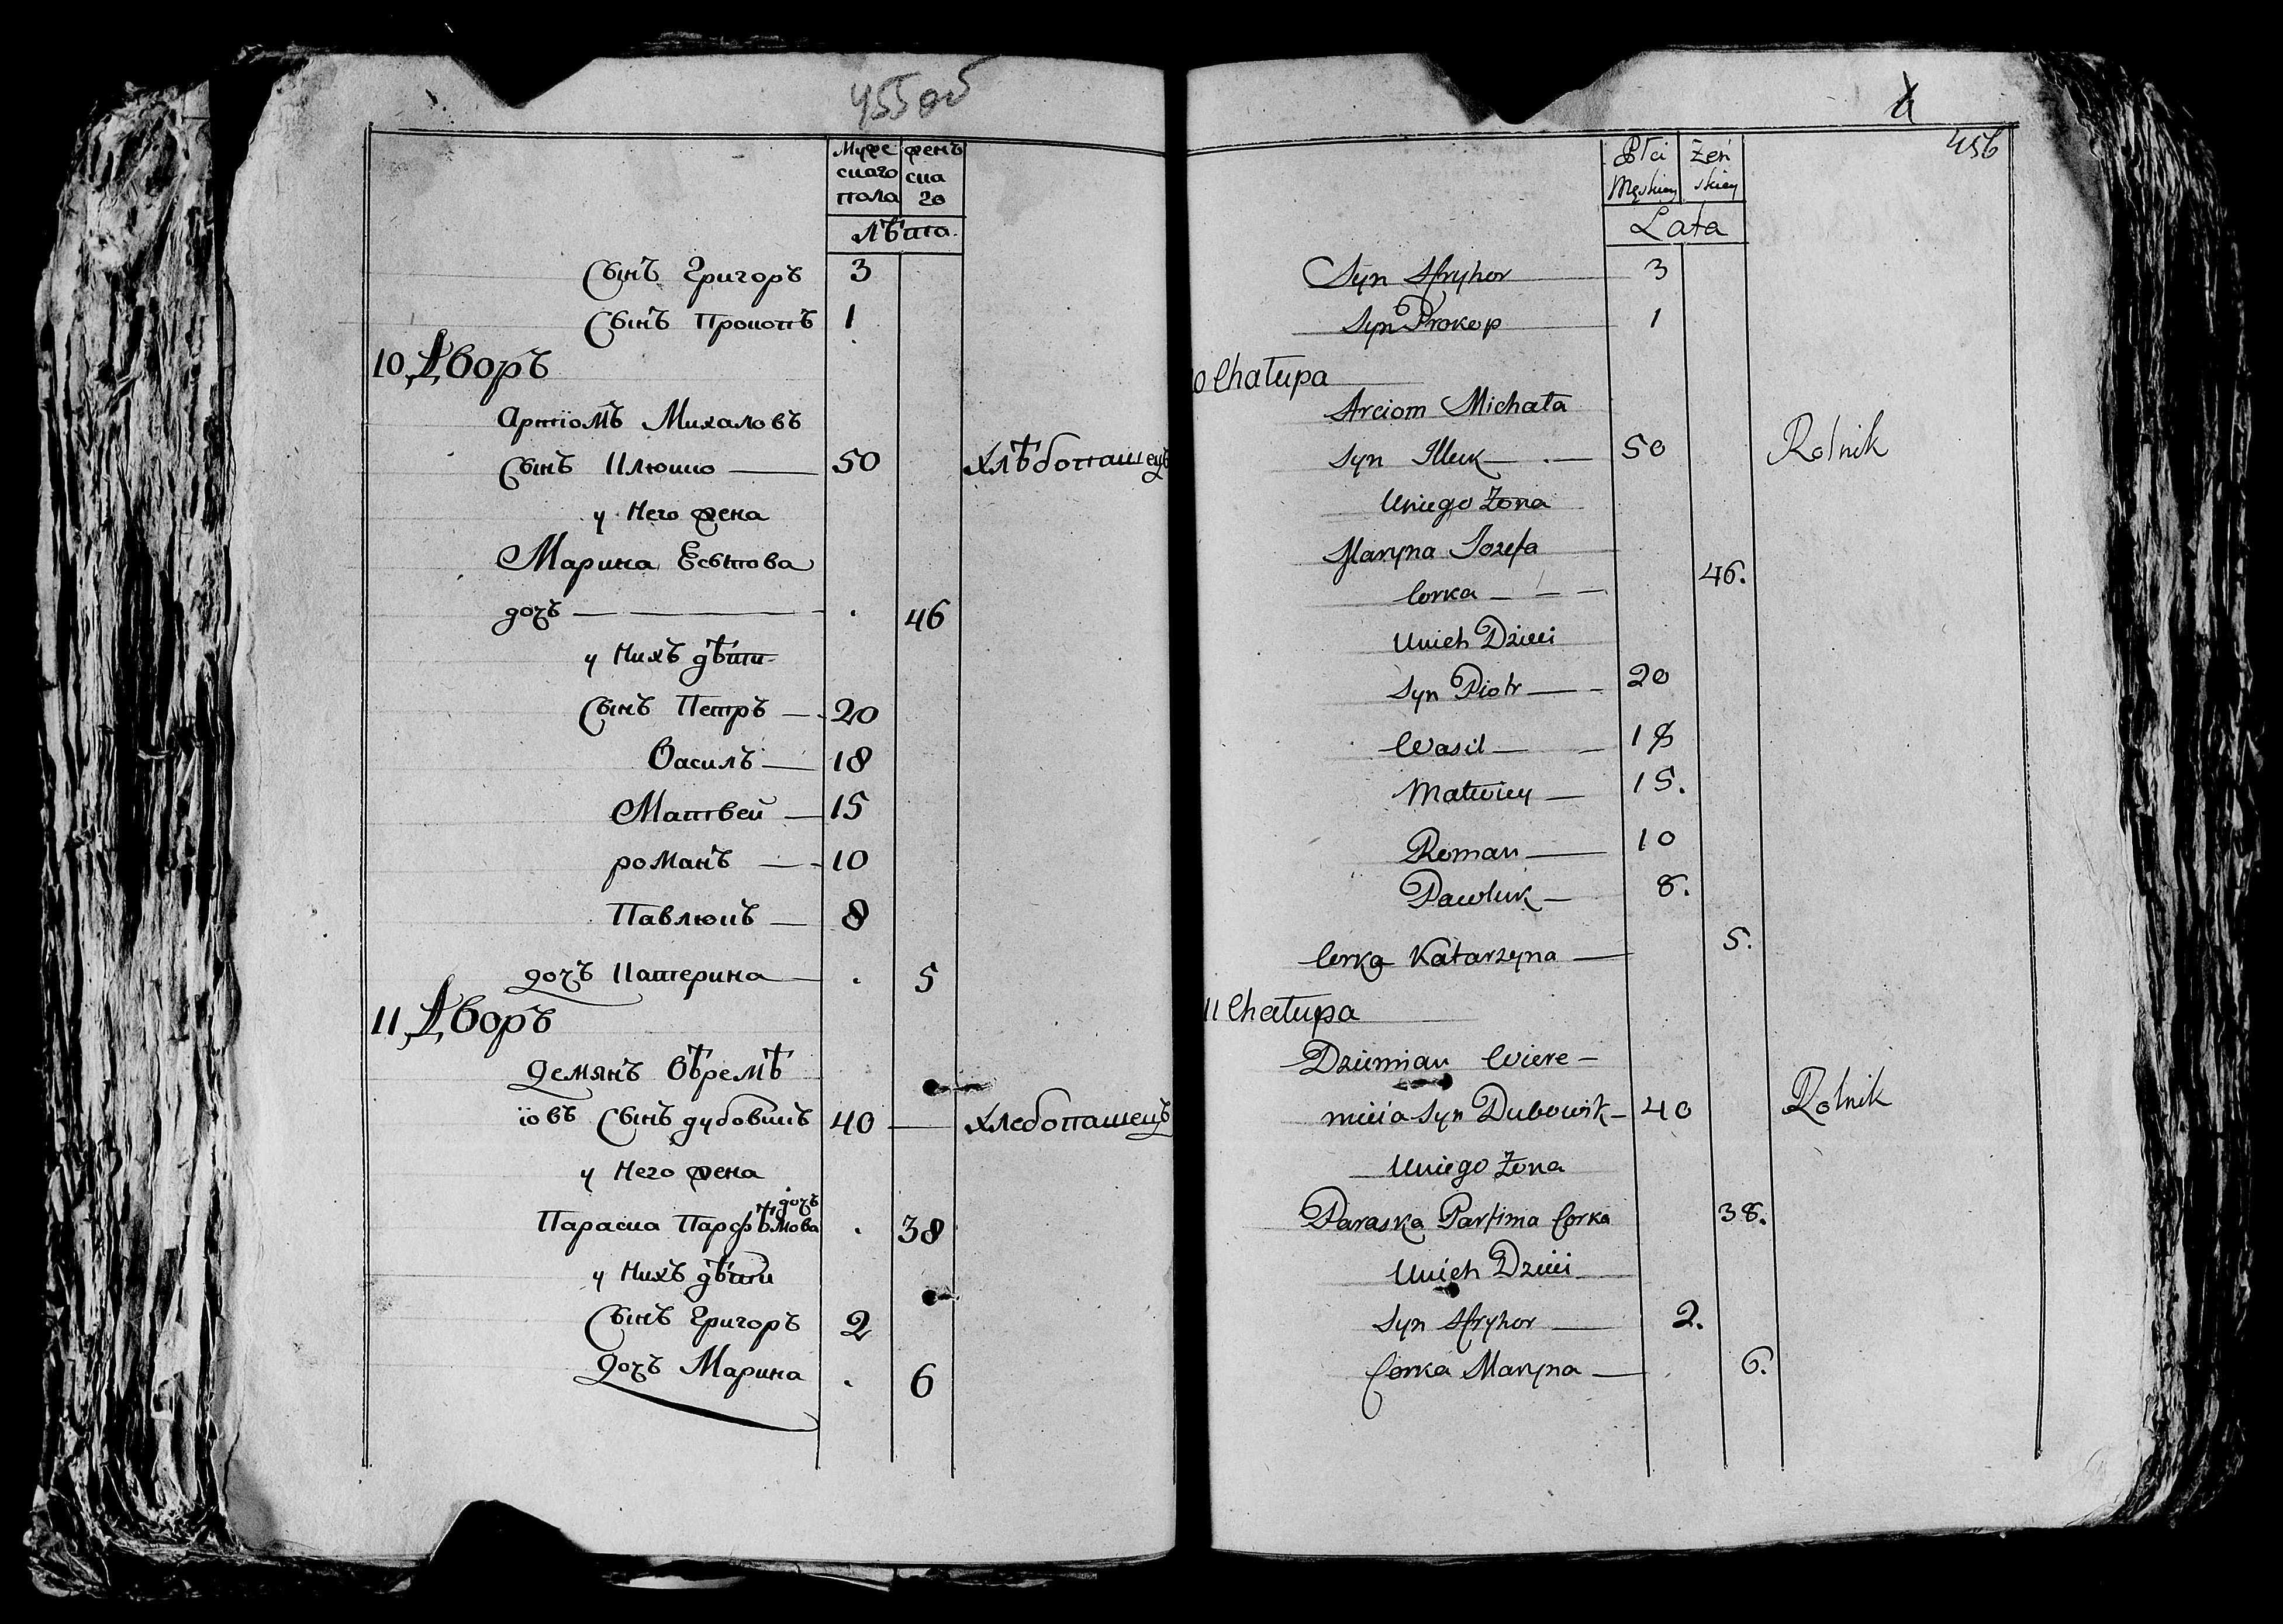 455 об
Муже женъ
скаго ска
пола го
лѣта.
Сынъ Григоръ 3
Сынъ Прокопъ 1
10, Дворъ
Артіомъ Михаловъ
Сынъ Илюшко — 50 хлѣбопашецъ
у Него жена
Марина Есѣпова
дочъ — . 46
у Нихъ дѣти
Сынъ Петръ — 20
Василъ — 18
Матвей — 15
романъ — 10
Павлюкъ — 8
дочъ Катерина — . 5
11, Дворъ
Демянъ Вѣремѣ
іовъ Сынъ дубовикъ 40 — хлебопашецъ
у Него жена
дочъ
Параска Парфѣмова . 38
у Нихъ дѣти
Сынъ Григоръ 2
дочъ Марина . 6
456
Płci Żeń
Męskiey skiey
Lata
Syn Hryhor 3
Syn Prokop 1
0 Chałupa
Arciom Michała
Syn Illuk — 50 Rolnik
Uniego Żona
Maryna Jozefa
Corka — — 46.
Unich Dzieci
Syn Piotr — 20
Wasil — 18
Matwiey — 15.
Roman — 10
Pawluk — 8.
Corka Katarzyna — 5.
11 Chałupa
Dziemian Wiere-
mieia Syn Dubowik — 40 Rolnik
Uniego Żona
Paraska Parfima Corka 38.
Unich Dzieci
Syn Hryhor — 2.
Corka Maryna — 6.